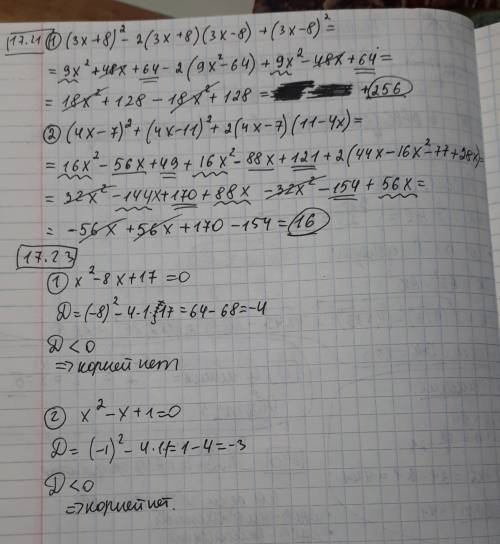 17.21 ① (3x+8)² - 2(3x+8)(3x-8) + (3x-8)² =
= 9x² + 48x + 64 - 2(9x²-64) + 9x² - 48x + 64 =
= 18x² + 128 - 18x² + 128 = +256
② (4x-7)² + (4x-11)² + 2(4x-7)(11-4x) =
= 16x² - 56x + 49 + 16x² - 88x + 121 + 2(44x - 16x² - 77 + 28x) =
= 32x² - 144x + 170 + 88x - 32x² - 154 + 56x =
= -56x + 56x + 170 - 154 = 16
17.23
① x² - 8x + 17 = 0
D = (-8)² - 4·1·17 = 64 - 68 = -4
D < 0
⇒ корней нет
② x² - x + 1 = 0
D = (-1)² - 4·1 = 1 - 4 = -3
D < 0
⇒ корней нет.